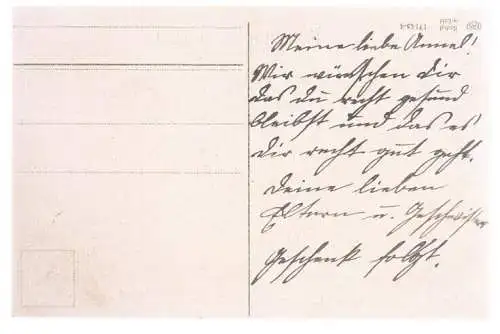 Meine liebe Annel!
Wir wünschen dir
das du recht gesund
bleibst und das es
dir recht gut geht.
Deine lieben
Eltern u. Geschwister
Geschenk folgt.